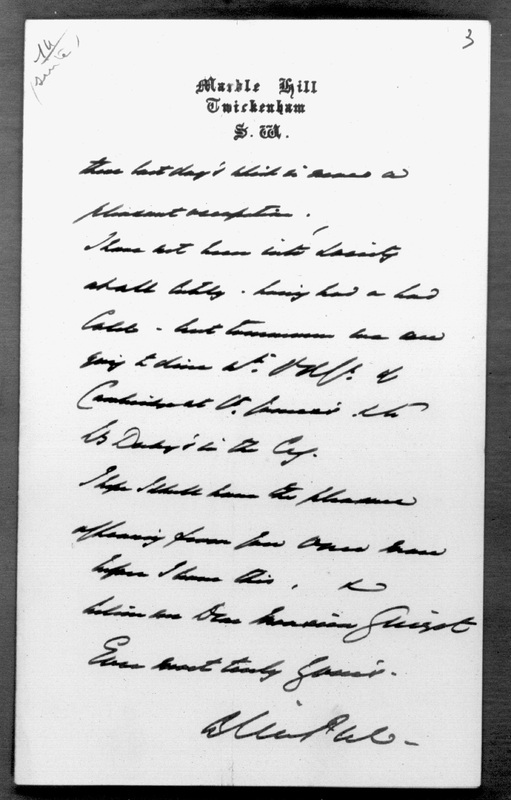 3
Marble Hill
Twickenham
S. W.
these last day's which is never a
pleasant occupation.
I have not been into Society
at all lately - having had a bad
Cold - but tomorrow we are
going to dine wt.
Cambridge at St. James's
Ld Derby's in the
I hope I shall have the pleasure
of hearing from you once more
before I leave this, &
believe me Dear Monsieur Guizot
Ever most truly Yours -